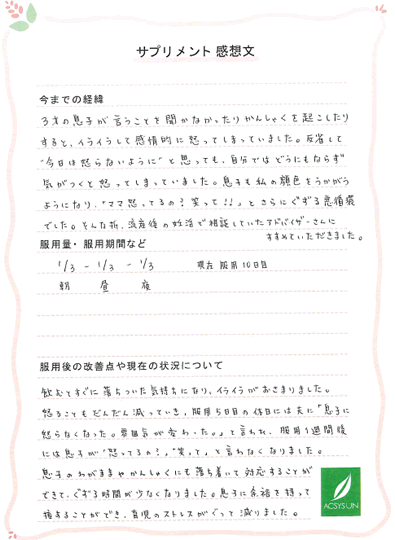 サプリメント 感想文
今までの経緯
3才の息子が言うことを聞かなかったりかんしゃくを起こしたり
すると、イライラして感情的に怒ってしまっていました。反省して
"今日は怒らないように"と思っても、自分ではどうにもならず
気がつくと怒ってしまっていました。息子も私の顔色をうかがう
ようになり、"ママ怒ってるの?笑って!!"とさらにぐずる悪循環
でした。そんな折、流産後の妊活で相談していたアドバイザーさんに
すすめていただきました。
服用量・服用期間など
1/3 - 1/3 - 1/3 現在 服用10日目
朝 昼 夜
服用後の改善点や現在の状況について
飲むとすぐに落ちついた気持ちになり、イライラがおさまりました。
怒ることもだんだん減っていき、服用5日目の休日には夫に「息子に
怒らなくなった。雰囲気が変わった。」と言われ、服用1週間後
には息子が「怒ってるの?」「笑って」と言わなくなりました。
息子のわがままやかんしゃくにも落ち着いて対応することが
できて、ぐずる時間が少なくなりました。息子に余裕を持って
接することができ、育児のストレスがぐっと減りました。
ACSYSUN